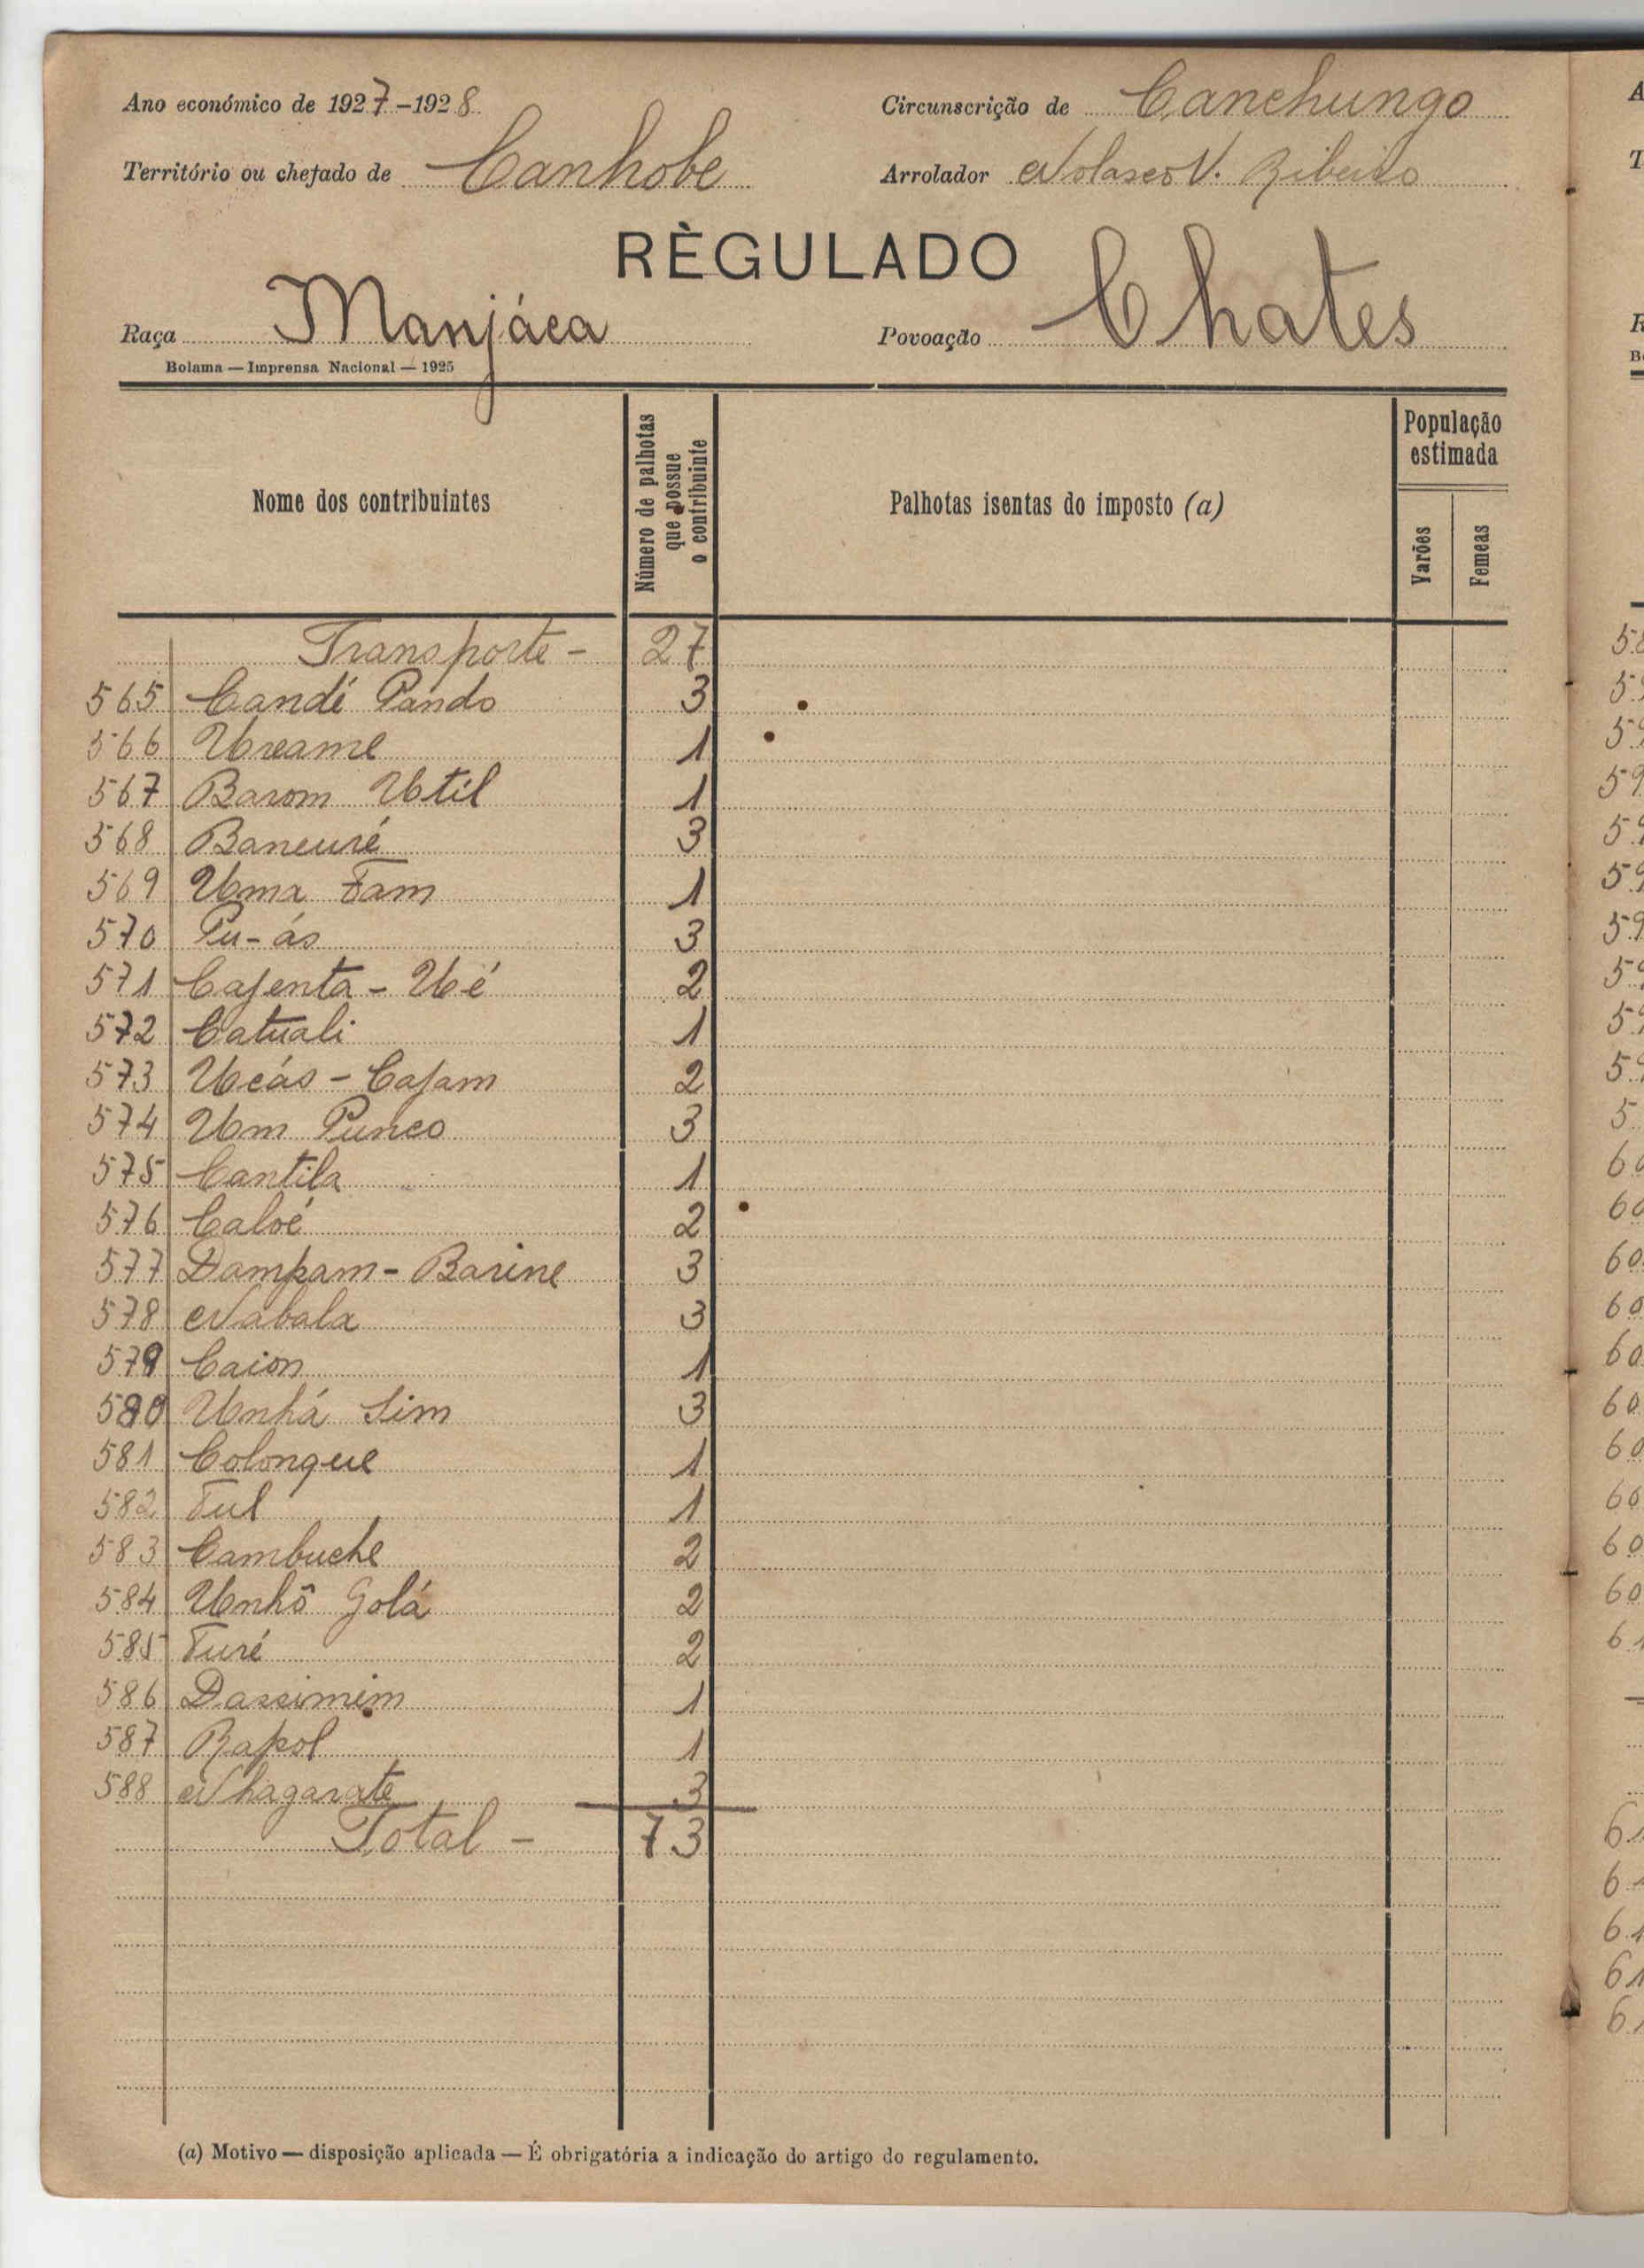 Ano económico de 1927-1928
Circunscrição de Canchungo
Território ou chefado de Canhobe
Arrolador Nolasco V. Ribeiro
RÈGULADO
Raça Manjáca
Povoação Chates
Bolama — Imprensa Nacional — 1925
Nome dos contribuintes
Número de palhotas que possue o contribuinte
Palhotas isentas do imposto (a)
População estimada
Varões
Femeas
Transporte - 27
565 Candé Pando 3
566 Ucame 1
567 Barom Util 1
568 Bancuré 3
569 Uma Tam 1
570 Pu-ás 3
571 Cajenta - Ué 2
572 Catuali 1
573 Ucás - Cajam 2
574 Um Punco 3
575 Cantila 1
576 Caloé 2
577 Dampam - Barine 3
578 Nabala 3
579 Caion 1
580 Unhá Sim 3
581 Colongue 1
582 Tul 1
583 Cambuche 2
584 Unhô Golá 2
585 Turé 2
586 Dassimim 1
587 Rapol 1
588 Nhagarate 3
Total - 73
(a) Motivo — disposição aplicada — É obrigatória a indicação do artigo do regulamento.